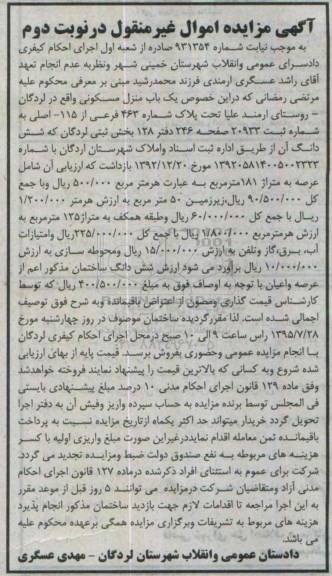 آگهی مزایده اموال غیرمنقول درنوبت دوم
به موجب نیابت شماره ۹۳۱۳۵۴ صادره از شعبه اول اجرای احکام کیفری
دادسرای عمومی وانقلاب شهرستان خمینی شهر ونظریه عدم انجام تعهد
آقای راشد عسگری ارمندی فرزند محمدرشید مبنی بر معرفی محکوم علیه
مرتضی رمضانی که دراین خصوص یک باب منزل مسکونی واقع در لردگان
– روستای ارمند علیا تحت پلاک شماره ۴۶۳ فرعی از ۱۱۵- اصلی به
شماره ثبت ۲۰۹۳۳ صفحه ۲۴۶ دفتر ۱۲۸ بخش ثبتی لردگان که شش
دانگ آن از طریق اداره ثبت اسناد واملاک شهرستان لردگان با شماره
۱۳۹۲۰۵۸۱۴۰۰۵۰۰۲۳۲۳ مورخ ۱۳۹۲/۱۲/۲۰ بازداشت که ارزیابی آن شامل
عرصه به متراژ ۱۸۱مترمربع به عبارت هرمتر مربع ۵۰۰/۰۰۰ ریال وبا جمع
کل ۹۰/۵۰۰/۰۰۰ ریال،زیرزمین ۵۰ متر مربع به ارزش هرمتر ۱/۲۰۰/۰۰۰
ریال با جمع کل ۶۰/۰۰۰/۰۰۰ ریال وطبقه همکف به متراژ۱۲۵ مترمربع به
ارزش هرمترمربع ۱/۸۰۰/۰۰۰ ریال با جمع کل ۲۲۵/۰۰۰/۰۰۰ریال وامتیازات
آب، برق،گاز وتلفن به ارزش ۱۵/۰۰۰/۰۰۰ ریال ومحوطه سازی به ارزش
۱۰/۰۰۰/۰۰۰ ریال برآورد می شود ارزش شش دانگ ساختمان مذکور اعم از
عرصه واعیان با توجه به اوصاف فوق به مبلغ ۴۰۰/۵۰۰/۰۰۰ ریال که توسط
کارشناس قیمت گذاری ومصون از اعتراض باقیمانده وبه شرح فوق توصیف
اجمالی شده است. لذا مقررگردیده ساختمان موصوف در روز چهارشنبه مورخ
۱۳۹۵/۷/۲۸ راس ساعت ۹ الی ۱۰ صبح درمحل اجرای احکام کیفری لردگان
با انجام مزایده عمومی وحضوری بفروش برسد. قیمت پایه از بهای ارزیابی
شده شروع وبه کسانی که بالاترین قیمت را پیشنهاد نمایند فروخته خواهدشد
وفق ماده ۱۲۹ قانون اجرای احکام مدنی ۱۰ درصد مبلغ پیشنهادی بایستی
فی المجلس توسط برنده مزایده به حساب سپرده واریز وفیش آن به دفتر اجرا
تحویل گردد خریدار میتواند حد اکثر یکماه ازتاریخ مزایده نسبت به پرداخت
باقیمانده ثمن معامله اقدام نمایددرغیراین صورت مبلغ واریزی اولیه با کسر
هزینه های مربوطه به نفع صندوق دولت ضبط ومزایده تجدید می گردد.
شرکت برای عموم به استثنای افراد ذکرشده درماده ۱۲۷ قانون اجرای احکام
مدنی آزاد ومتقاضیان شرکت درمزایده می توانند ۵ روز قبل از موعد مقرر
به این اجرا مراجعه تا اقدامات لازم جهت بازدید ساختمان مذکور انجام پذیرد
هزینه های مربوط به تشریفات وبرگزاری مزایده همگی برعهده محکوم علیه
می باشد.
دادستان عمومی وانقلاب شهرستان لردگان – مهدی عسگری